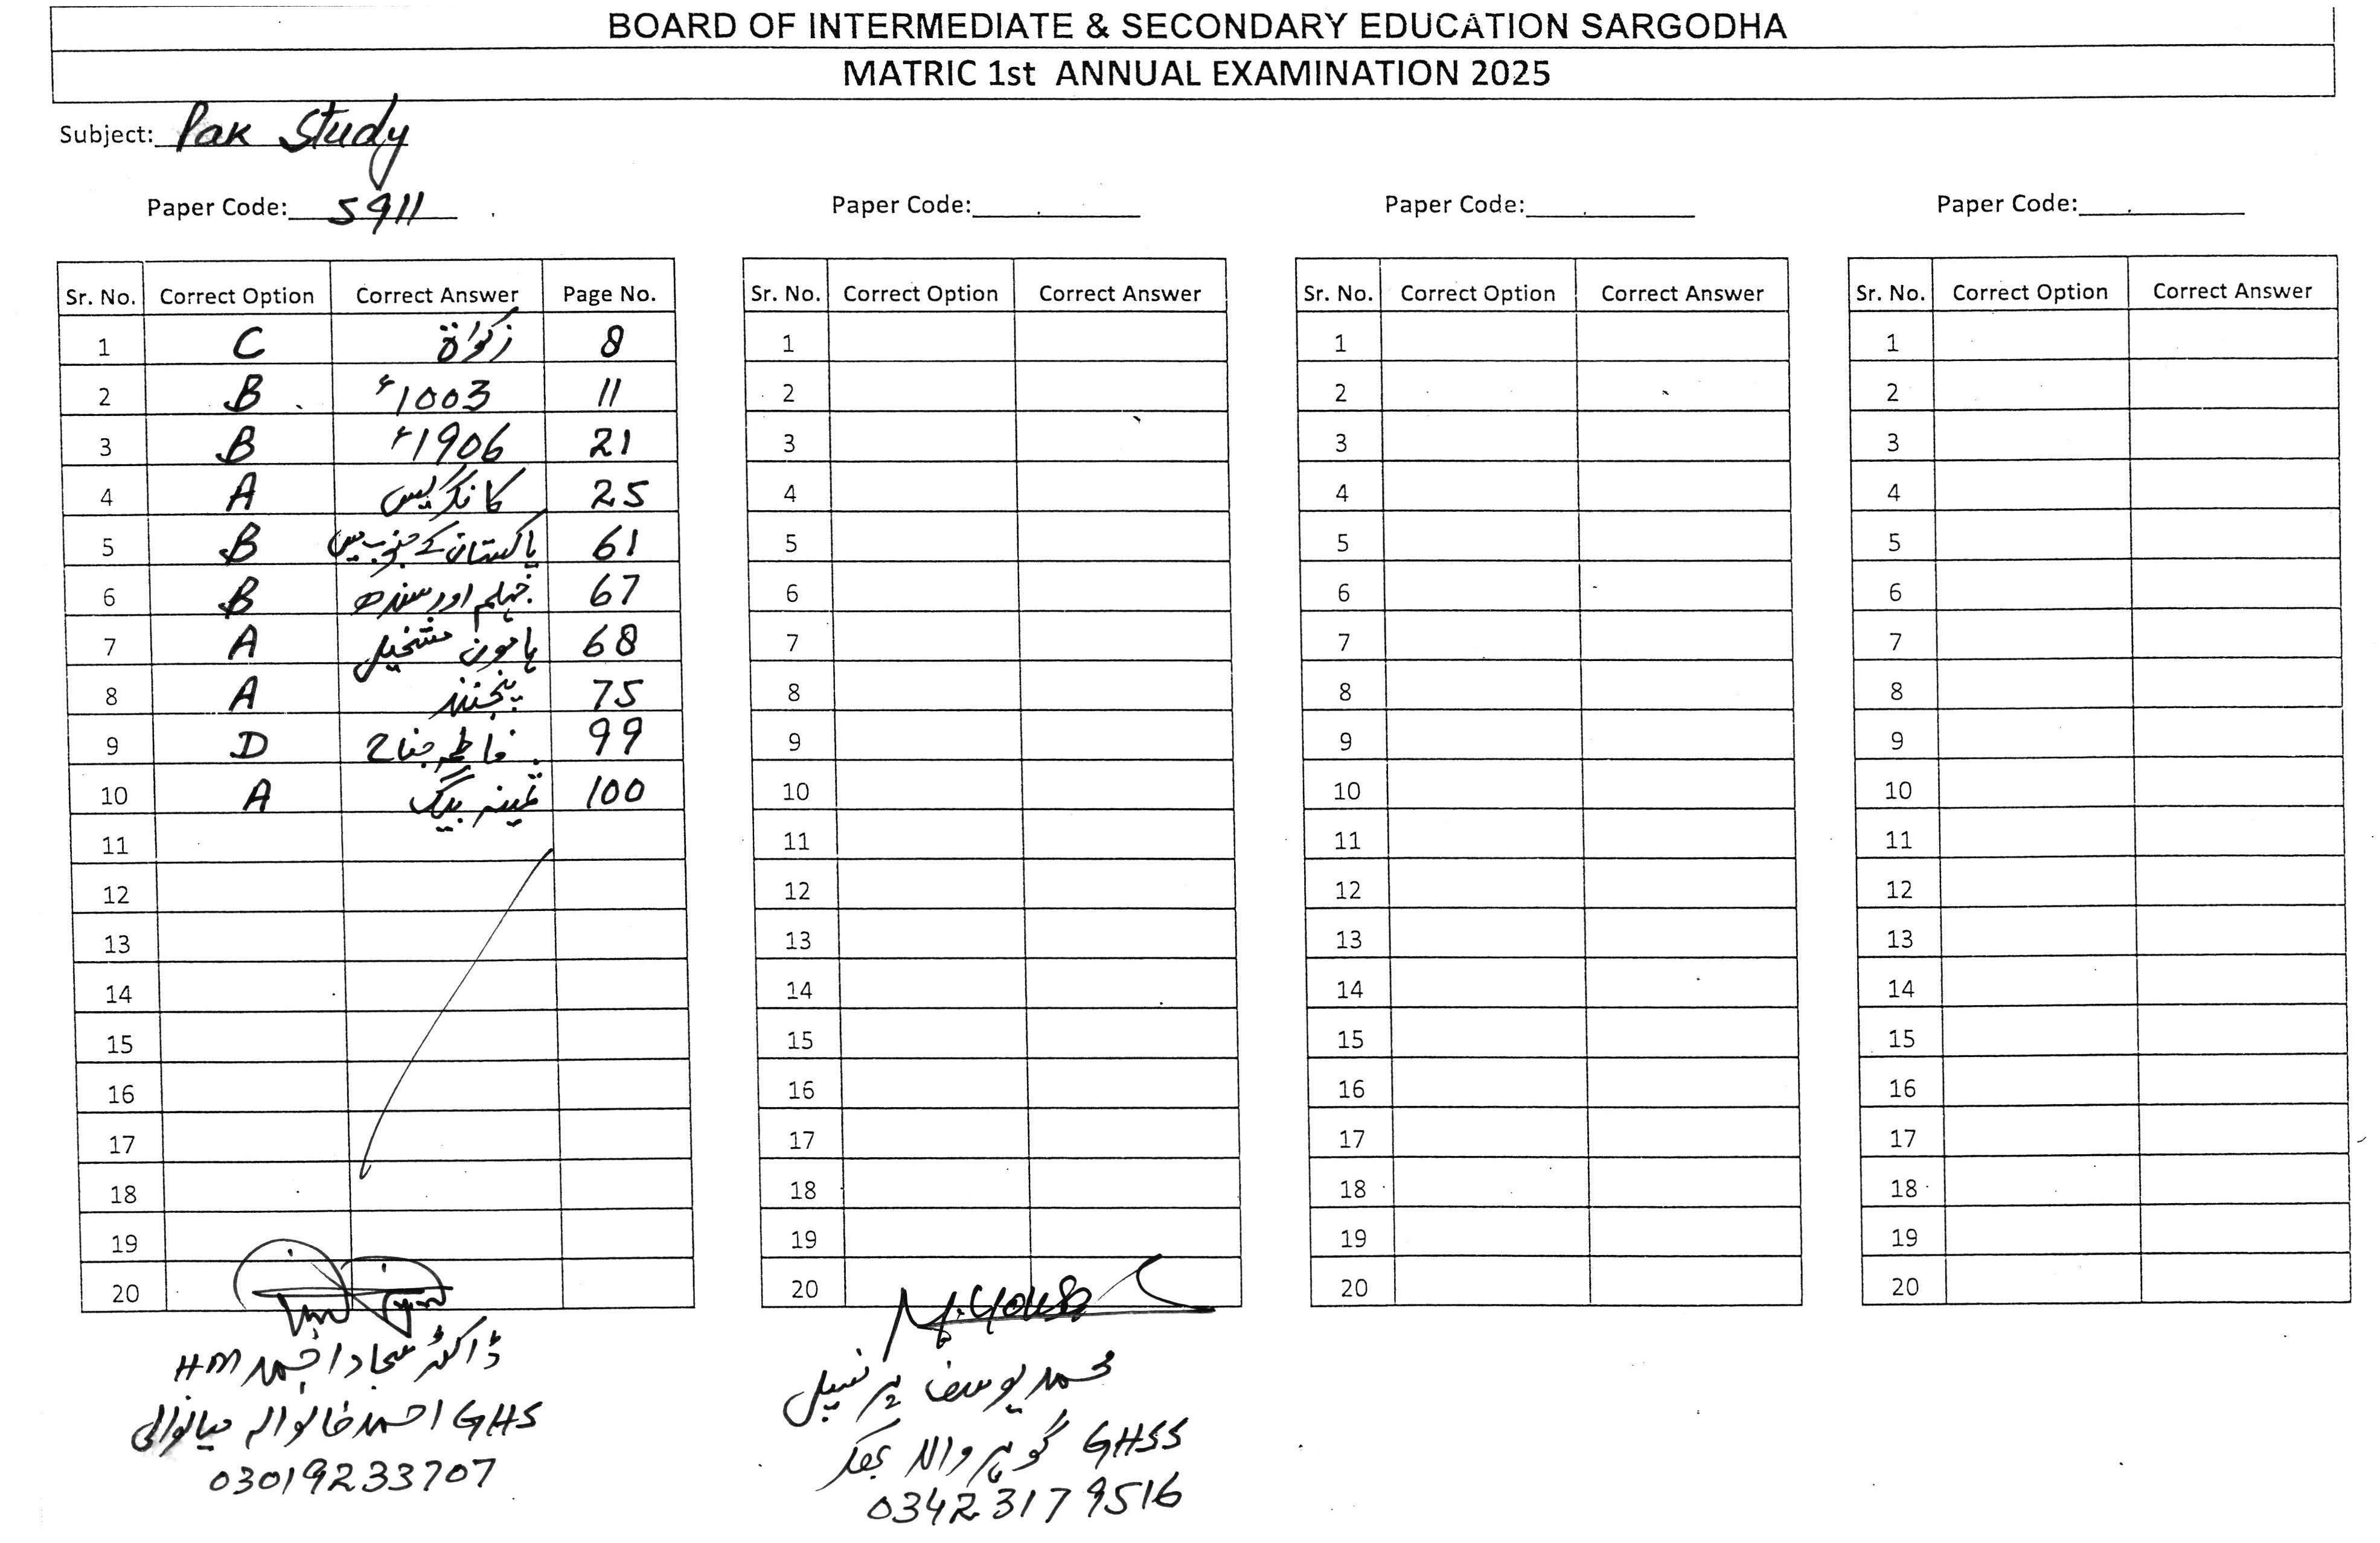 BOARD OF INTERMEDIATE & SECONDARY EDUCATION SARGODHA
MATRIC 1st ANNUAL EXAMINATION 2025
Subject: Pak Study
Paper Code: 5911 Paper Code: Paper Code: Paper Code:
Sr. No. Correct Option Correct Answer Page No. Sr. No. Correct Option Correct Answer Sr. No. Correct Option Correct Answer Sr. No. Correct Option Correct Answer
1 C زکوٰۃ 8 1 1 1
2 B 1003ء 11 2 2 2
3 B 1906ء 21 3 3 3
4 A کانگریس 25 4 4 4
5 B پاکستان کے جنوب میں 61 5 5 5
6 B جہلم اور سندھ 67 6 6 6
7 A ہامون مشخیل 68 7 7 7
8 A پنجند 75 8 8 8
9 D فاطمہ جناح 99 9 9 9
10 A ثمینہ بیگ 100 10 10 10
11 11 11 11
12 12 12 12
13 13 13 13
14 14 14 14
15 15 15 15
16 16 16 16
17 17 17 17
18 18 18 18
19 19 19 19
20 20 20 20
M. Yousaf
ڈاکٹر سجاد احمد HM
GHS احمد خانوالہ میانوالی
03019233707
محمد یوسف پرنسپل
GHSS گوہر والا بھکر
03423179516